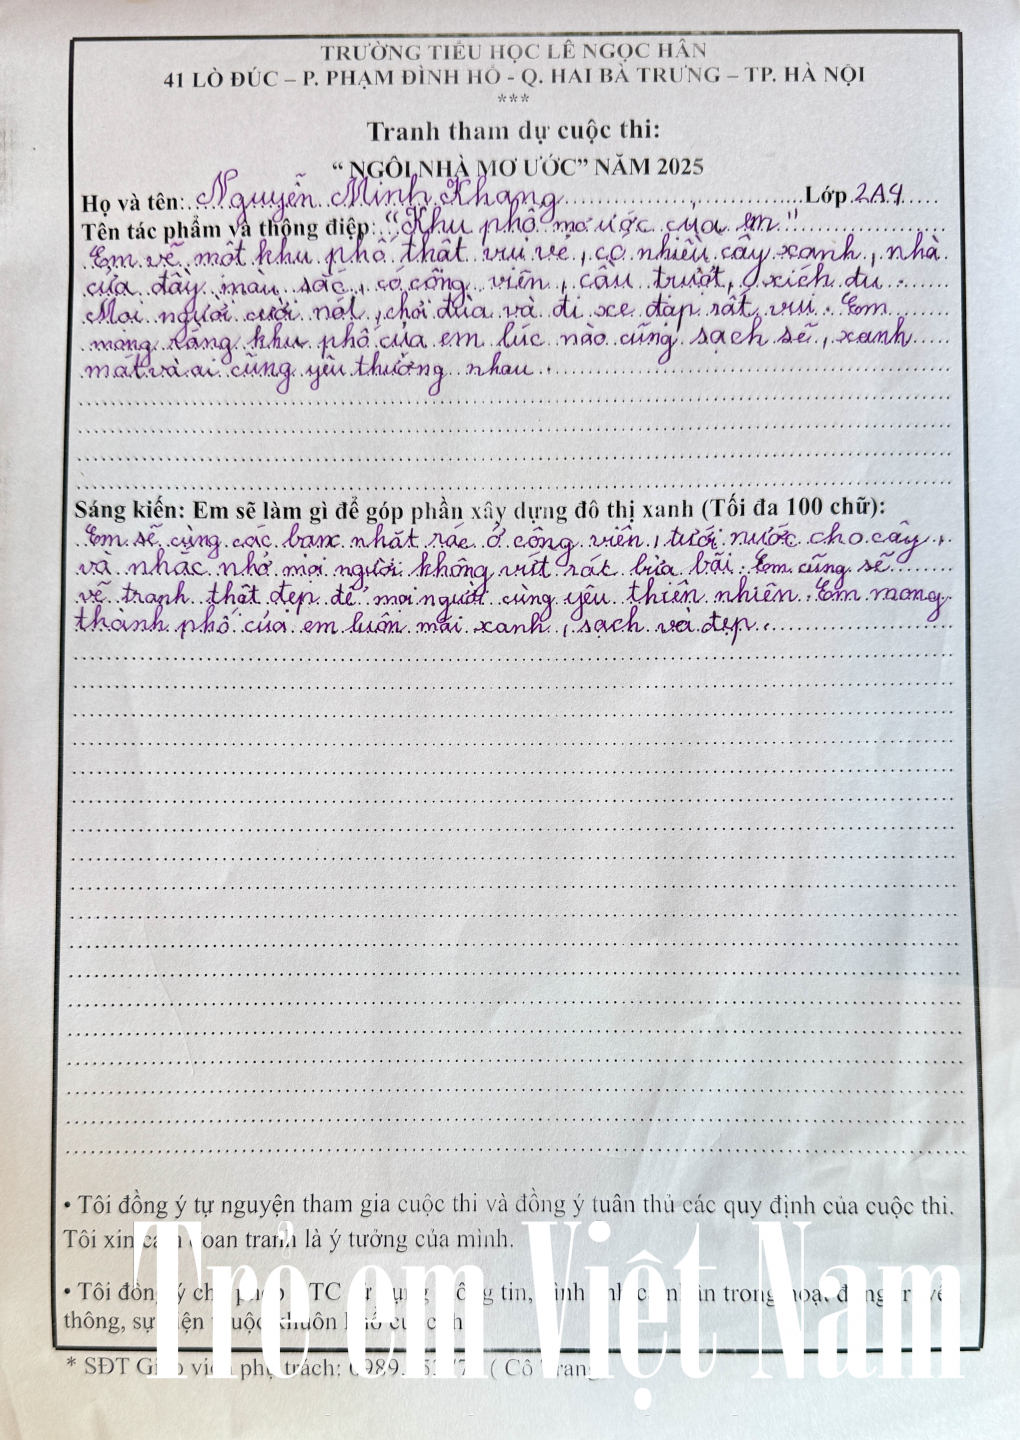 TRƯỜNG TIỂU HỌC LÊ NGỌC HÂN
41 LÒ ĐÚC – P. PHẠM ĐÌNH HỔ - Q. HAI BÀ TRƯNG – TP. HÀ NỘI
***
Tranh tham dự cuộc thi:
“ NGÔI NHÀ MƠ ƯỚC” NĂM 2025
Họ và tên: Nguyễn Minh Khang Lớp 2A4
Tên tác phẩm và thông điệp: "Khu phố mơ ước của em"
Em vẽ một khu phố thật vui vẻ, có nhiều cây xanh, nhà
cửa đầy màu sắc, có công viên, cầu trượt, xích đu.
Mọi người cười nói, chơi đùa và đi xe đạp rất vui. Em
mong rằng khu phố của em lúc nào cũng sạch sẽ, xanh
mát và ai cũng yêu thương nhau.
Sáng kiến: Em sẽ làm gì để góp phần xây dựng đô thị xanh (Tối đa 100 chữ):
Em sẽ cùng các bạn nhặt rác ở công viên, tưới nước cho cây,
và nhắc nhở mọi người không vứt rác bừa bãi. Em cũng sẽ
vẽ tranh thật đẹp để mọi người cùng yêu thiên nhiên. Em mong
thành phố của em luôn mãi xanh, sạch và đẹp.
• Tôi đồng ý tự nguyện tham gia cuộc thi và đồng ý tuân thủ các quy định của cuộc thi.
Tôi xin đoan tranh là ý tưởng của mình.
• Tôi đồng ý cho phép BTC sử dụng thông tin, hình ảnh cá nhân trong hoạt động truyền
thông, sự kiện thuộc khuôn khổ
* SĐT Giáo viên phụ trách: ( Cô Trang
Trẻ em Việt Nam